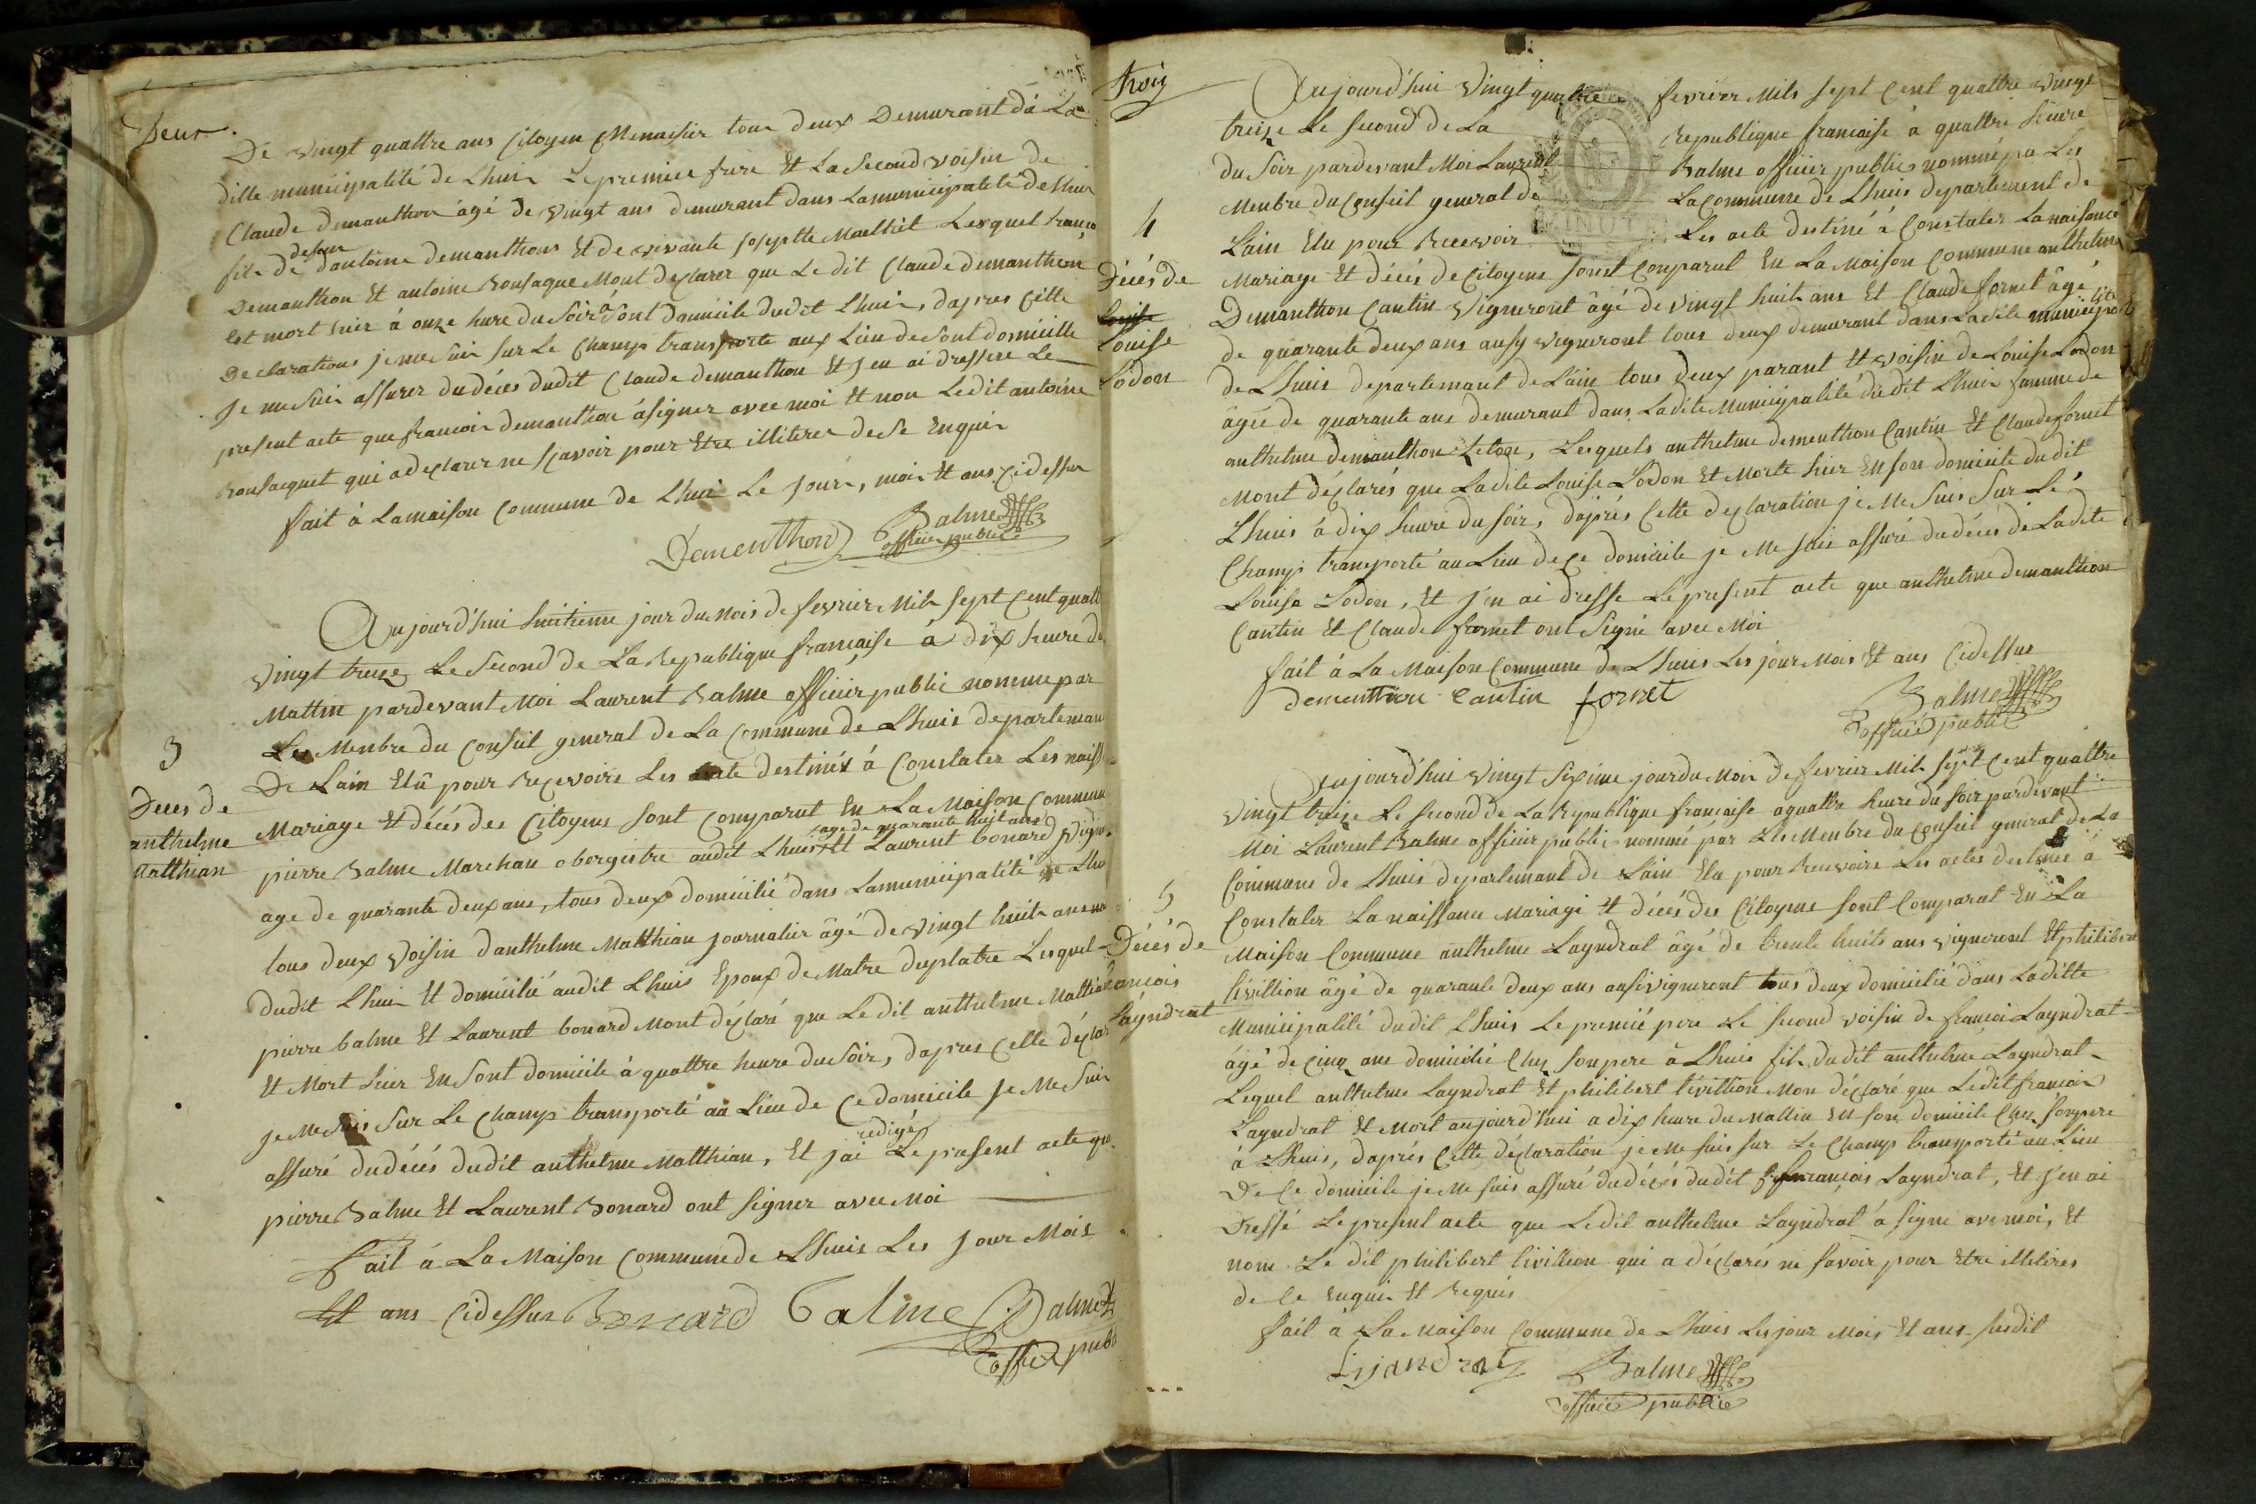 Deux
De vingt quattre ans Citoyen Menaisier tous deux Demurant dá La
ditte municipalité de Lhuis Le premier frere Et Le Second voisin de
Claude demanthon âgé de vingt ans demurant dans La municipalité de Lhuis
fils de defun dantoine demanthons Et de vivante josepthe Maelhiet Lesquel françois
Demanthon Et antoine Bonsaque Mont declarer que Le dit Claude demanthon
Est mort hier à onze hure du Soir à Sont domicile dudit Lhuis, dapres Cette
Declarations je me Suis Sur Le Champs transporte aux Lieu de Sont domicille
Je me Suis assurer du déces dudit Claude demanthon Et Jen ai dressere Le
present acte que francois demanthon à signer avec moi Et non Ledit antoine
Bonsacquet qui a déclarer ne sçavoir pour Etre illiterer de Se Enquis
fait à La maison Commune de Lhuis Le Jour, mois Et ans Cidessus
Dementhon Balme
officier public
Aujourd'hui huitieme jour du Mois de fevrier Mils Sept Cent quatt
Vingt treize Le Second de La Republique francaise à dix heure du
Mattin pardevant Moi Laurent Balme officier public nommé par
Les Menbre du Conseil general de La Commune de Lhuis departeman
De Lain Elû pour Recevoire Les acte destinés à Constater Les naiss
3
Deces de
anthelme
Matthian
Mariage Et décés des Citoyens Sont Comparut En La Maison Commune
pierre Balme Marchan obergistre audit Lhuis age de quarante huit ans Et Laurent bonard Vigne
age de quarante deux ans, tous deux domicilié dans La municipalité de Lhu
tous deux Voisin danthelme Matthian journalier âgé de vingt huit ans
dudit Lhuis Et domicilié audit Lhuis Epoux de Matre duplatre Lesquel
pierre balme Et Laurent bonard Mont déclaré que Le dit anthelme Matthian
Et Mort hier En Sont domicile à quattre heure du Soir, dapres Cette déclar
je Me Suis Sur Le Champs transporté au Lieu de Ce domicile Je Me Suis
assuré du décés dudit anthelme Matthian, Et jai redigé Le present acte que
pierre Balme Et Laurent Bonard ont Signer avec Moi
fait à La Maison Commune de Lhuis Les Jour Mois
Et ans Cidessus Bonard Balme Balme
officier publ
Trois
Aujourd'hui Vingt quattre fevrier Mils Sept Cent quattre Vingt
treize Le Second de La Republique francaise à quattre heure
du Soir pardevant Moi Laurent Balme officier public nommé pa Les
Menbre du Conseil general de La Commune de Lhuis departement de
Lain Elu pour Recevoir Les acte destiné à Constater La naisance
4
Décés de
Louise
Louise
Lodon
Mariage Et décés de Citoyens Sonst Conparut En La Maison Commune anthelme
Demanthon Cantin Vigneront âgé de vingt huit ans Et Claude fornet âgé
de quarante deux ans aussy vigneront tous deux demurant dans La dite municipalité
de Lhuis departemant de Lain tous deux parant Et voisin de Louise Lodon
âgée de quarante ans demurant dans Ladite Municipalité dudit Lhuis famme de
anthelme demanthon Leton, Lesquels anthelme dementhon Cantin Et Claude fornet
Mont déclarés que Ladite Louise Lodon Et Morte hier En Son domicile dudit
Lhuis à dix heure du Soir, dáprés Cette declaration je Me Suis Sur Le
Champs transporté au Lieu de Ce domicile je Me Suis assuré du décés de Ladite
Louise Lodon, Et J'en ai dresse Le present acte que anthelme demanthon
Cantin Et Claude fornet ont Signé avec Moi
fait à La Maison Commune de Lhuis Les jour Mois Et ans Cidessus
dementhon Cantin fornet
Balme
officié public
Aujourd'hui vingt Sixime jour du Mois de fevrier Mils Sept Cent quáttre
vingt treize Le Second de La Republique francaise a quattre heure du Soir pardevant
Moi Laurent Balme officier public nommé par Les Menbre du Conseil general de La
Commune de Lhuis departemant de Lain Elu pour Recevoire Les actes destinés à
5
Décés de
francois
Layndrat
Constater La naissance Mariage Et décés des Citoyens Sont Comparut En La
Maison Commune anthelme Layndrat âgé de trente huits ans vigneront Et philibert
livillion âgé de quarante deux ans ausi vigneront tous deux domicilié dans La ditte
Municipalité dudit Lhuis Le premié pere Le Second voisin de francois Layndrat
âgé de Cinq ans domicilié Chez Son pere à Lhuis fils dudit anthelme Layndrat
Lequel anthelme Layndrat Et philibert livillion Mon déclaré que Ledit francois
Layndrat Et Mort aujourd'hui a dix heure du Mattin En Son domicile Chez Son pere
à Lhuis, daprés Cette déclaration je Me Suis Sur Le Champs transporté au Lieu
De Ce domicile je Me Suis assuré du décés dudit francois Layndrat, Et J'en ai
dressé Le present acte que Ledit anthelme Layndrat à Signé avé moi, Et
nom Le dit philibert livillion qui a déclarés ne Savoir pour Etre illitéres
de Ce Enquis Et Requis
fait à La Maison Commune de Lhuis Les jour Mois Et ans Susdit
Balme
officié public